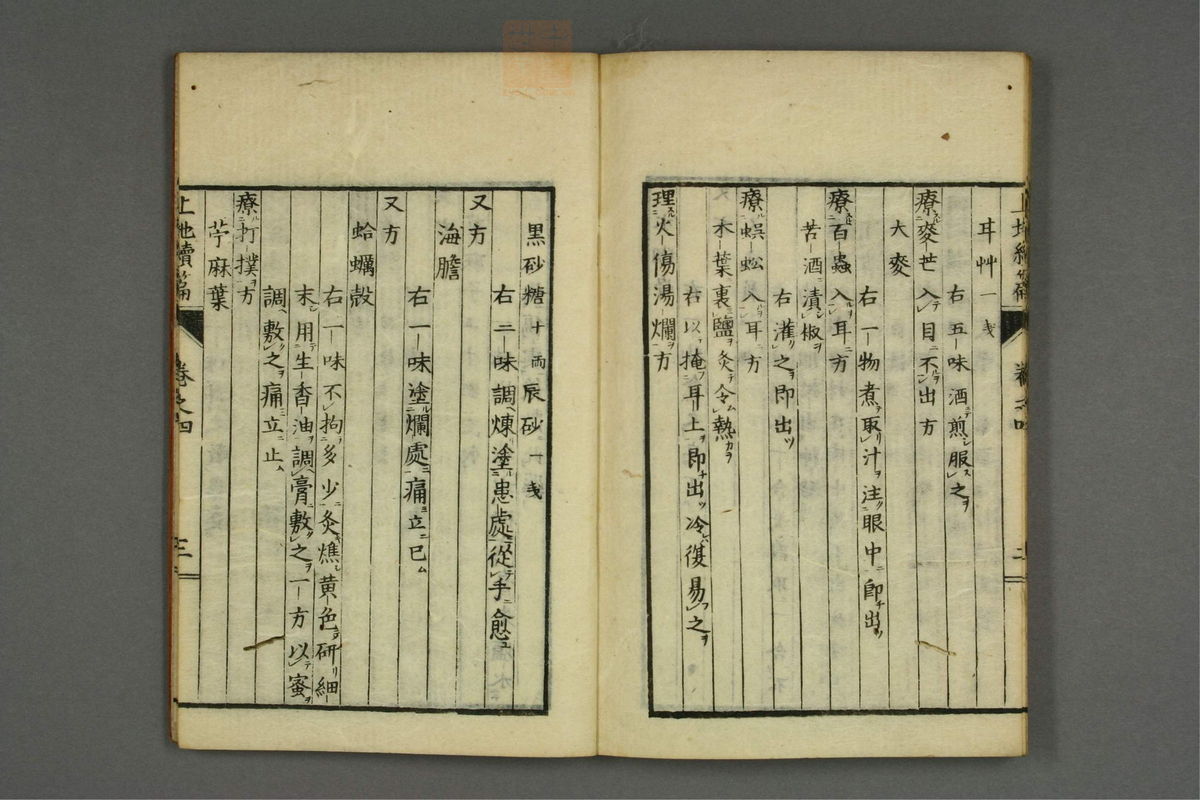 耳艸一戔
右五味酒煎服之
療麥芒入目不出方
大麥
右一物煮取汁注眼中卽出
療百蟲入耳方
苦酒漬椒
右灌之即出
療蜈蚣入耳方
木葉裏鹽炙令熱
右以掩耳上即出冷復易之
理火傷湯爛方
黒砂糖十両辰砂一戔
右二味調煉塗患處從手愈
又方
海膽
右一味塗爛處痛立已
又方
蛤蠣殻
右一味不拘多少炙燋黄色研細
末用生香油調膏敷之一方以蜜
調敷之痛立止
療打撲方
苧麻葉
上池續篇 卷之四 三